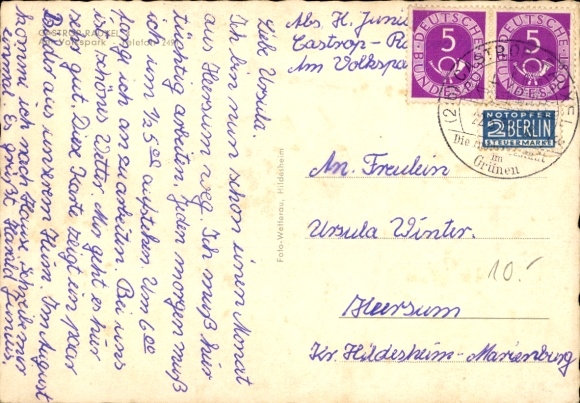 CASTROP-RAUXEL
Am Volkspark - Telefon 24
Liebe Ursula.
Ich bin nun schon einen Monat
aus Heersum weg. Ich muß hier
tüchtig arbeiten, jeden morgen muß
ich um ½5 00 aufstehen. Um 6 00
fang ich an zu arbeiten. Bei uns
ist schönes Wetter. Mir geht es hier
sehr gut. Diese Karte zeigt ein paar
Bilder aus unserem Heim. Im August
komm ich nach Hause. Schreib mir
einmal. Es grüßt Harald Junius.
Foto-Wetterau, Hildesheim
Abs. H. Juni
Castrop-Ra
Am Volkspa
DEUTSCHE BUNDESPOST 5
DEUTSCHE BUNDESPOST 5
CASTROP
Die
im
Grünen
NOTOPFER
2 BERLIN
STEUERMARKE
An. Freulein
Ursula Winter.
10.-
Heersum
Kr. Hildesheim-Marienburg